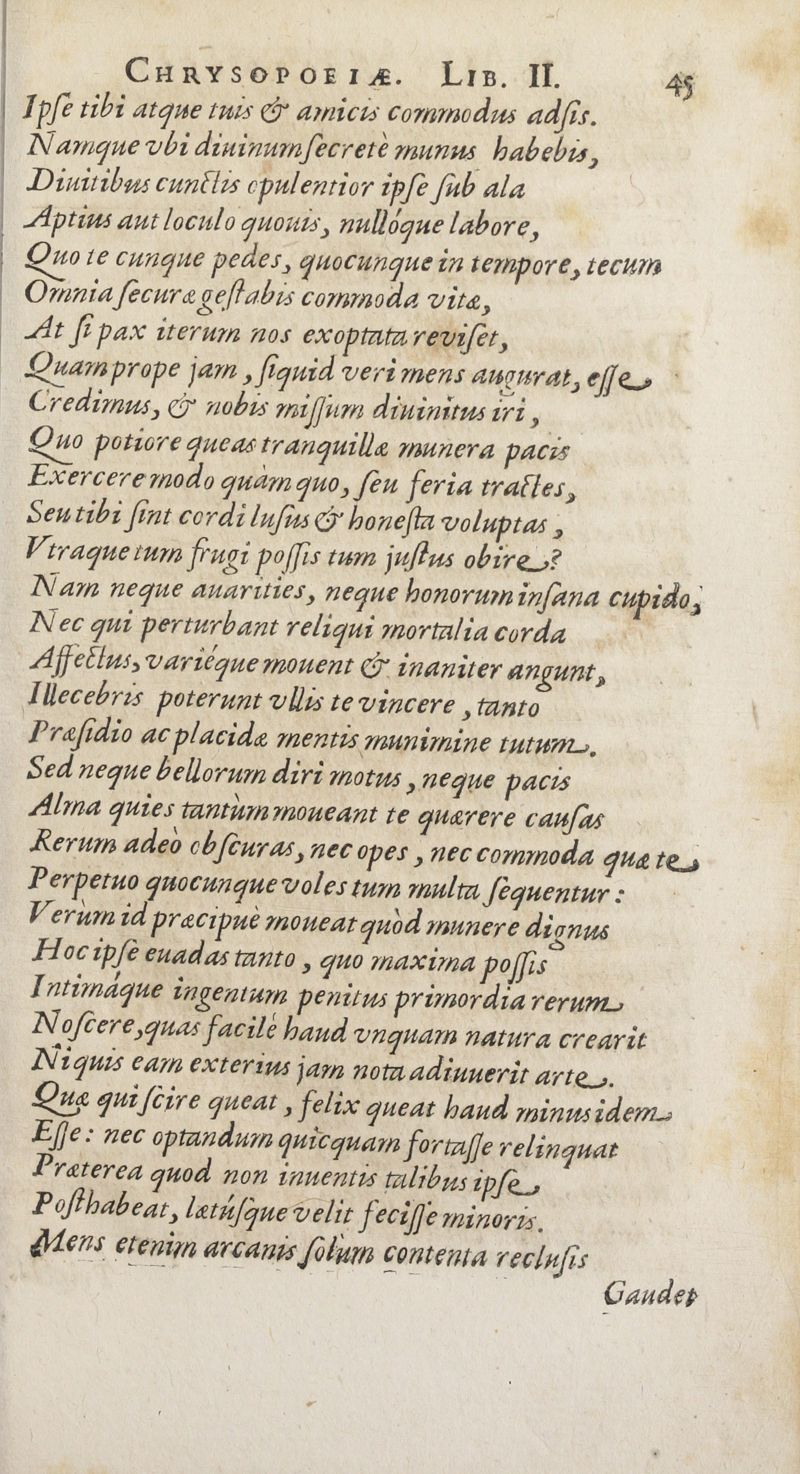 CHRYSOPOEIÆ. LIB. II. 45
Ipſe tibi atque tuis & amicis commodus adſis.
Namque vbi diuinum ſecretè munus habebis,
Diuitibus cunctis opulentior ipſe ſub ala
Aptius aut loculo quouis, nullóque labore,
Quo te cunque pedes, quocunque in tempore, tecum
Omnia ſecuræ geſtabis commoda vitæ,
At ſi pax iterum nos exoptata reviſet,
Quam prope jam, ſiquid veri mens augurat, eſſe
Credimus, & nobis miſſum diuinitus iri,
Quo potiore queas tranquillæ munera pacis
Exercere modo quàm quo, ſeu feria tractes,
Seu tibi ſint cordi luſus & honeſta voluptas,
Vtraque tum frugi poſſis tum juſtus obire?
Nam neque auarities, neque honorum inſana cupido,
Nec qui perturbant reliqui mortalia corda
Affectus, variéque mouent & inaniter angunt,
Illecebris poterunt vllis te vincere, tanto
Præſidio ac placidæ mentis munimine tutum.
Sed neque bellorum diri motus, neque pacis
Alma quies tantùm moueant te quærere cauſas
Rerum adeò obſcuras, nec opes, nec commoda quæ te
Perpetuo quocunque voles tum multa ſequentur:
Verùm id præcipuè moueat quòd munere dignus
Hoc ipſe euadas tanto, quo maxima poſſis
Intimáque ingentum penitus primordia rerum
Noſcere, quas facilè haud vnquam natura crearit
Ni quis eam exterius jam nota adiuuerit arte.
Quæ qui ſcire queat, felix queat haud minus idem
Eſſe: nec optandum quicquam fortaſſe relinquat
Præterea quod non inuentis talibus ipſe
Poſthabeat, lætúſque velit feciſſe minoris.
Mens etenim arcanis ſolum contenta recluſis
Gaudet